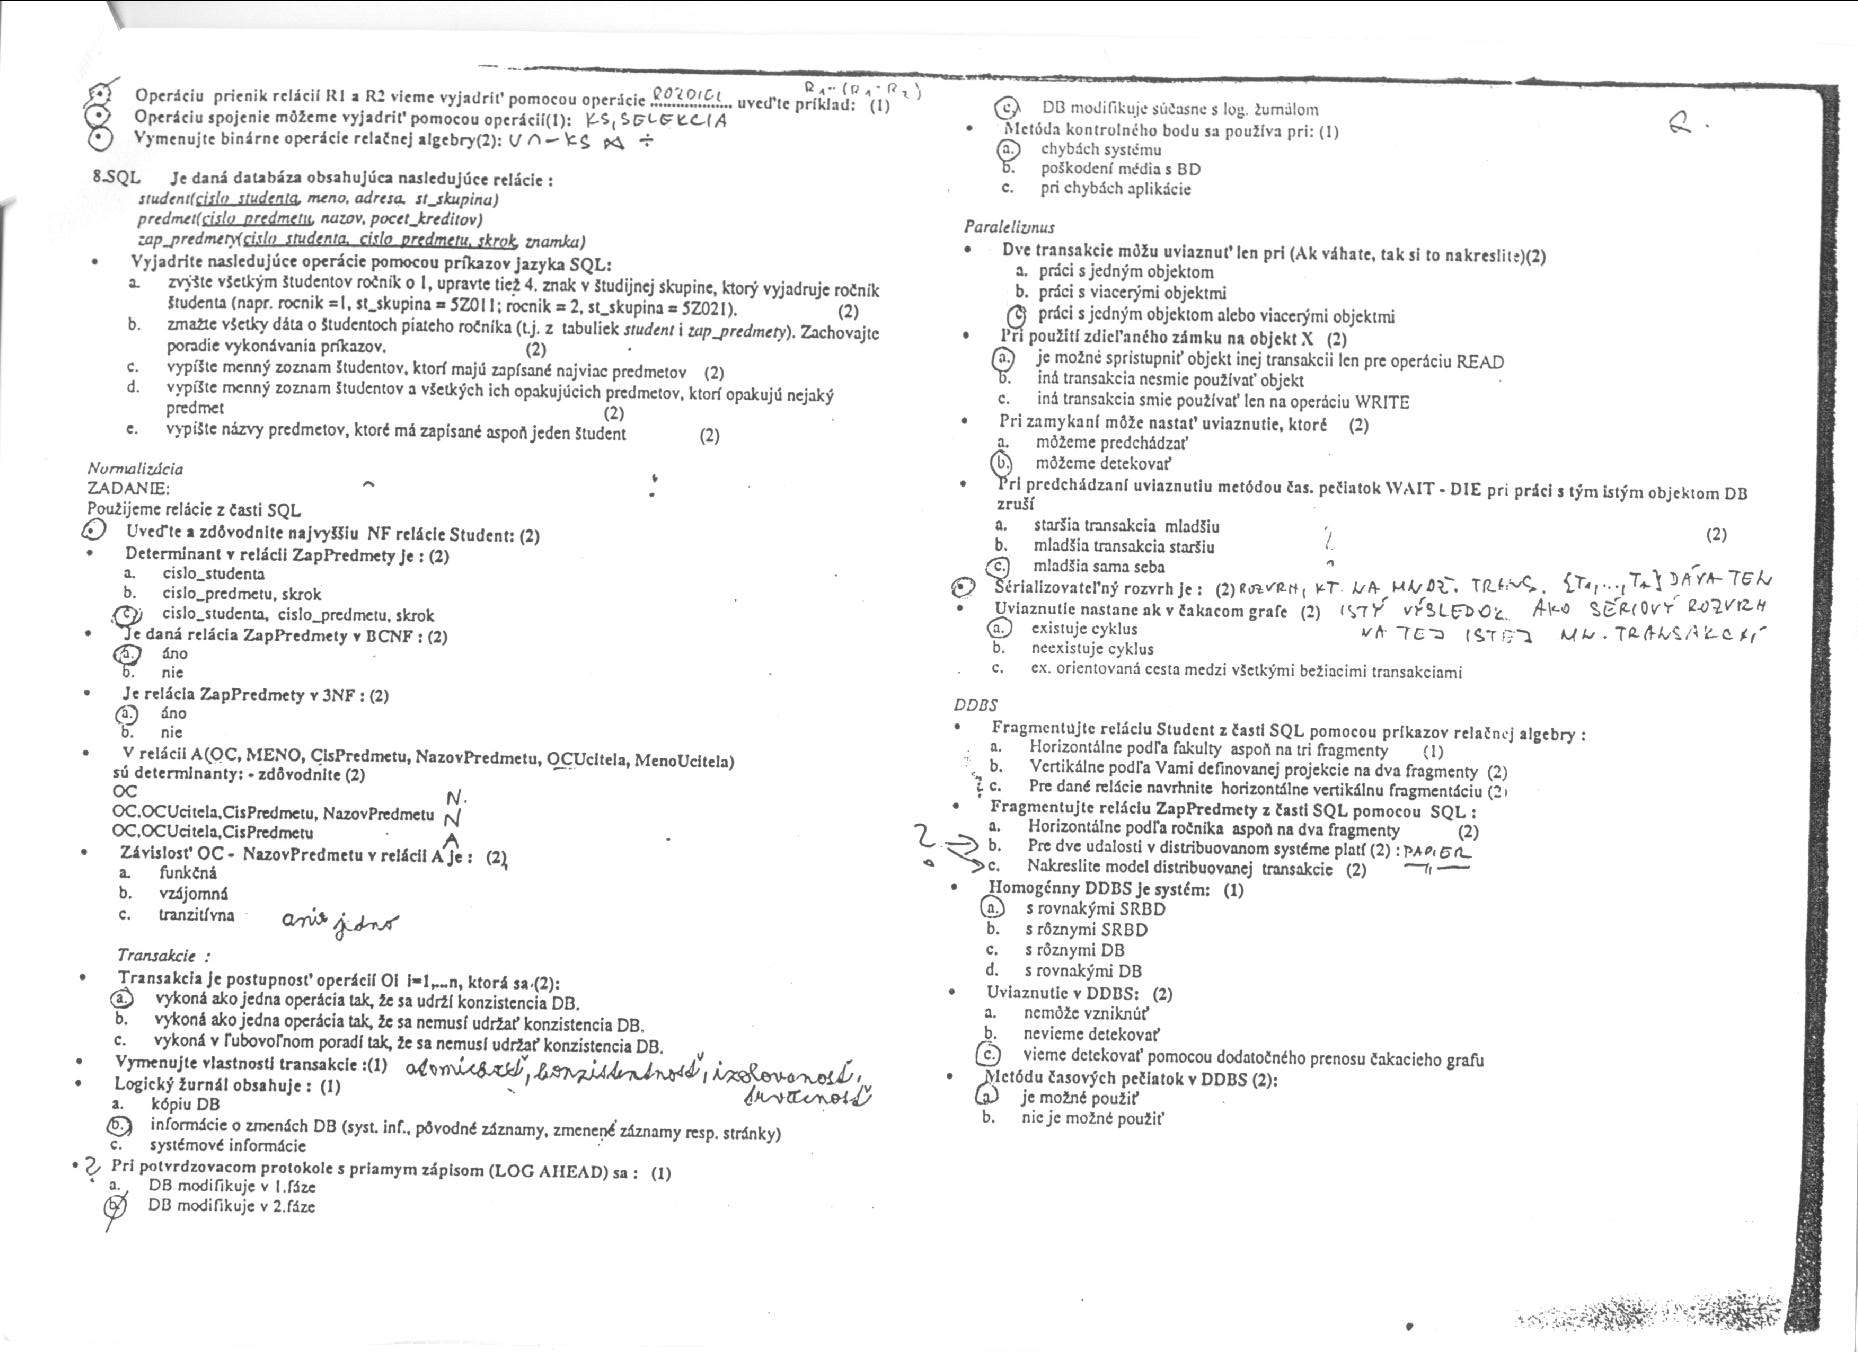 Operáciu prienik relácií R1 a R2 vieme vyjadriť pomocou operácie ROZDIEL uveďte príklad: (1) R1-(R1-R2)
Operáciu spojenie môžeme vyjadriť pomocou operácií(1): KS, SELEKCIA
Vymenujte binárne operácie relačnej algebry(2): ∪ ∩ - KS ⋈ ÷
8.SQL Je daná databáza obsahujúca nasledujúce relácie :
student(cislo_studenta, meno, adresa, st_skupina)
predmet(cislo_predmetu, nazov, pocet_kreditov)
zap_predmety(cislo_studenta, cislo_predmetu, skrok, znamka)
• Vyjadrite nasledujúce operácie pomocou príkazov jazyka SQL:
a. zvýšte všetkým študentov ročník o 1, upravte tiež 4. znak v študijnej skupine, ktorý vyjadruje ročník
študenta (napr. rocnik =1, st_skupina = 5Z011; rocnik = 2, st_skupina = 5Z021). (2)
b. zmažte všetky dáta o študentoch piateho ročníka (t.j. z tabuliek student i zap_predmety). Zachovajte
poradie vykonávania príkazov. (2)
c. vypíšte menný zoznam študentov, ktorí majú zapísané najviac predmetov (2)
d. vypíšte menný zoznam študentov a všetkých ich opakujúcich predmetov, ktorí opakujú nejaký
predmet (2)
e. vypíšte názvy predmetov, ktoré má zapísané aspoň jeden študent (2)
Normalizácia
ZADANIE:
Použijeme relácie z časti SQL
Uveďte a zdôvodnite najvyššiu NF relácie Student: (2)
• Determinant v relácii ZapPredmety je : (2)
a. cislo_studenta
b. cislo_predmetu, skrok
c. cislo_studenta, cislo_predmetu, skrok
• Je daná relácia ZapPredmety v BCNF : (2)
a. áno
b. nie
• Je relácia ZapPredmety v 3NF : (2)
a. áno
b. nie
• V relácii A(OC, MENO, CisPredmetu, NazovPredmetu, OCUcitela, MenoUcitela)
sú determinanty: - zdôvodnite (2)
OC N.
OC,OCUcitela,CisPredmetu, NazovPredmetu N
OC,OCUcitela,CisPredmetu A
• Závislosť OC - NazovPredmetu v relácii A je : (2)
a. funkčná
b. vzájomná
c. tranzitívna anie jedno
Transakcie :
• Transakcia je postupnosť operácií Oi i=1,...n, ktorá sa (2):
a. vykoná ako jedna operácia tak, že sa udrží konzistencia DB.
b. vykoná ako jedna operácia tak, že sa nemusí udržať konzistencia DB.
c. vykoná v ľubovoľnom poradí tak, že sa nemusí udržať konzistencia DB.
• Vymenujte vlastnosti transakcie :(1) atomickosť, konzistentnosť, izolovanosť,
trvácnosť
• Logický žurnál obsahuje : (1)
a. kópiu DB
b. informácie o zmenách DB (syst. inf., pôvodné záznamy, zmenené záznamy resp. stránky)
c. systémové informácie
• ? Pri potvrdzovacom protokole s priamym zápisom (LOG AHEAD) sa : (1)
a. DB modifikuje v 1.fáze
b. DB modifikuje v 2.fáze
c. DB modifikuje súčasne s log. žurnálom
• Metóda kontrolného bodu sa používa pri: (1)
a. chybách systému
b. poškodení média s BD
c. pri chybách aplikácie
Paralelizmus
• Dve transakcie môžu uviaznuť len pri (Ak váhate, tak si to nakreslite)(2)
a. práci s jedným objektom
b. práci s viacerými objektmi
c. práci s jedným objektom alebo viacerými objektmi
• Pri použití zdieľaného zámku na objekt X (2)
a. je možné sprístupniť objekt inej transakcii len pre operáciu READ
b. iná transakcia nesmie používať objekt
c. iná transakcia smie používať len na operáciu WRITE
• Pri zamykaní môže nastať uviaznutie, ktoré (2)
a. môžeme predchádzať
b. môžeme detekovať
• Pri predchádzaní uviaznutiu metódou čas. pečiatok WAIT - DIE pri práci s tým istým objektom DB
zruší
a. staršia transakcia mladšiu (2)
b. mladšia transakcia staršiu
c. mladšia sama seba
Sérializovateľný rozvrh je : (2) ROZVRH, KT. NA MNOŽ. TRANS. {T1,...,Tn} DÁVA TEN
• Uviaznutie nastane ak v čakacom grafe (2) ISTÝ VÝSLEDOK AKO SÉRIOVÝ ROZVRH
a. existuje cyklus NA TEJ ISTEJ MN. TRANSAKCIÍ
b. neexistuje cyklus
c. ex. orientovaná cesta medzi všetkými bežiacimi transakciami
DDBS
• Fragmentujte reláciu Student z časti SQL pomocou príkazov relačnej algebry :
a. Horizontálne podľa fakulty aspoň na tri fragmenty (1)
b. Vertikálne podľa Vami definovanej projekcie na dva fragmenty (2)
? c. Pre dané relácie navrhnite horizontálne vertikálnu fragmentáciu (2)
• Fragmentujte reláciu ZapPredmety z časti SQL pomocou SQL :
a. Horizontálne podľa ročníka aspoň na dva fragmenty (2)
? b. Pre dve udalosti v distribuovanom systéme platí (2) : PAPIER
c. Nakreslite model distribuovanej transakcie (2) —"—
• Homogénny DDBS je systém: (1)
a. s rovnakými SRBD
b. s rôznymi SRBD
c. s rôznymi DB
d. s rovnakými DB
• Uviaznutie v DDBS: (2)
a. nemôže vzniknúť
b. nevieme detekovať
c. vieme detekovať pomocou dodatočného prenosu čakacieho grafu
• Metódu časových pečiatok v DDBS (2):
a. je možné použiť
b. nie je možné použiť